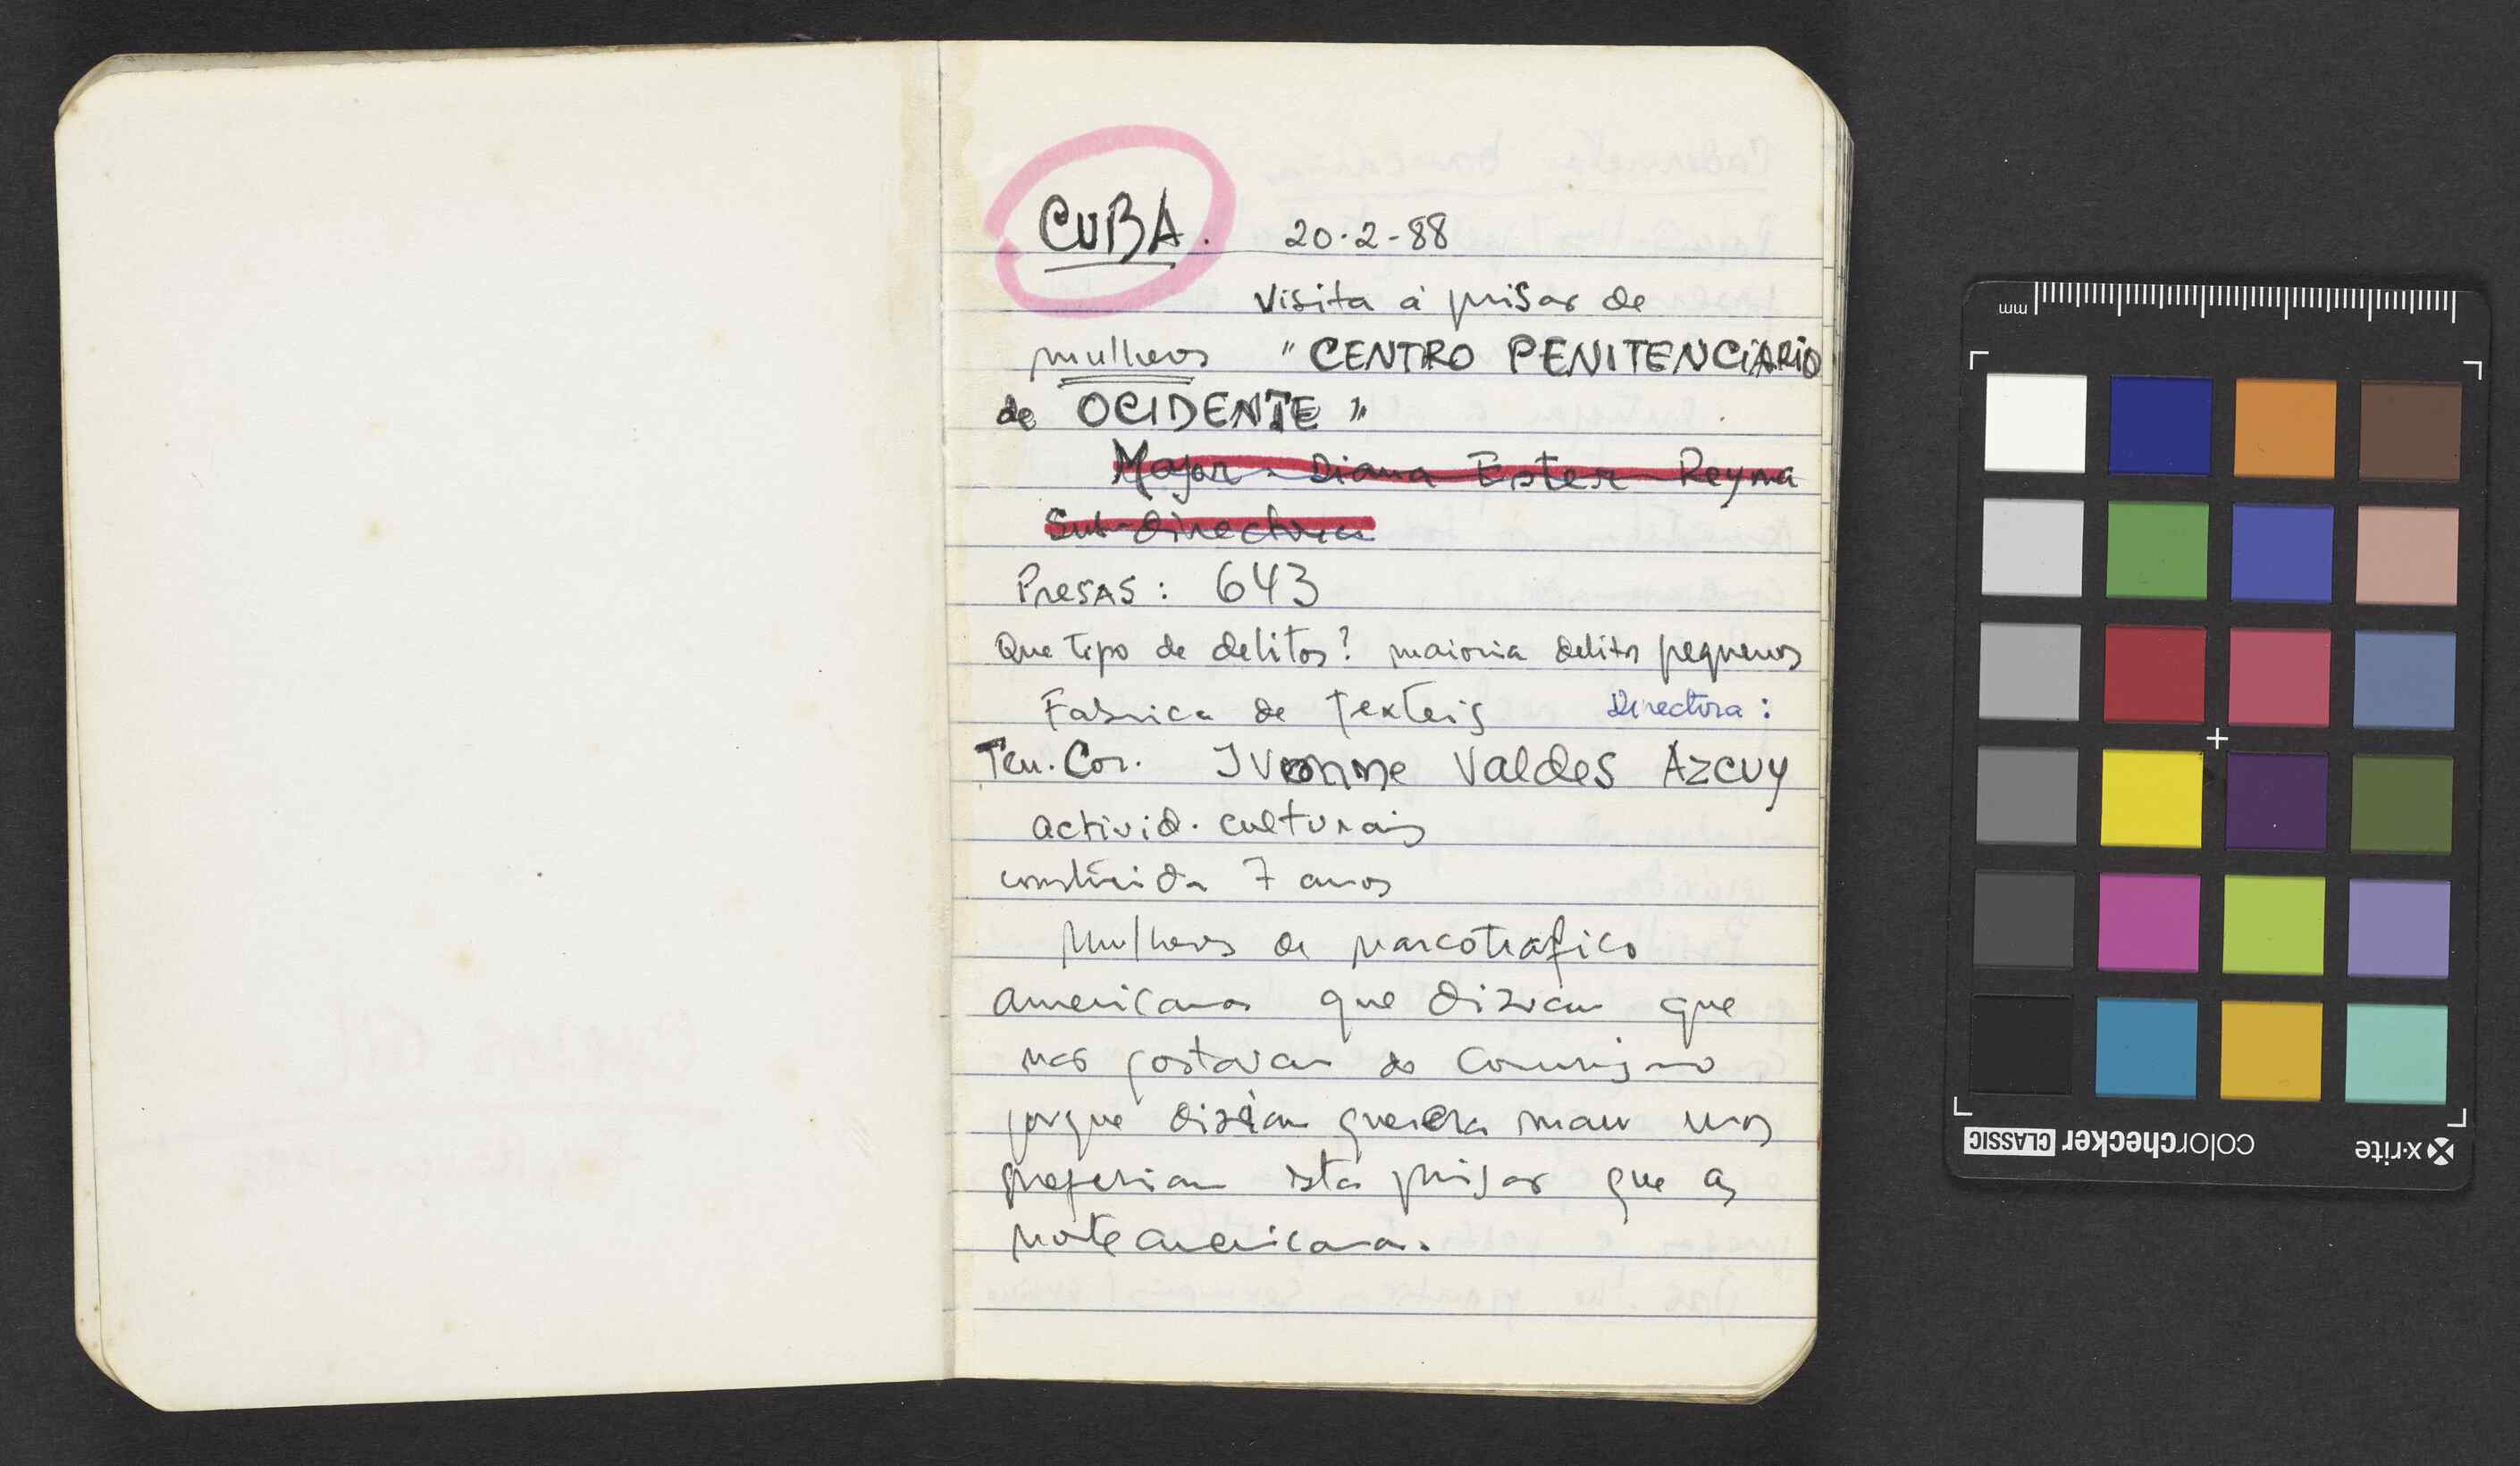 CUBA. 20-2-88
Visita à prisão de
mulheres "CENTRO PENITENCIARIO
de OCIDENTE"
Major - Diana Ester Reyna
Sub-directora
Presas: 643
Que tipo de delitos? maioria delitos pequenos
Fabrica de Texteis Directora:
Ten. Cor. Ivonne Valdes Azcuy
activid. culturais
construida 7 anos
Mulheres de narcotrafico
americanas que diziam que
não gostavam do Comunismo
porque diziam que era mau mas
preferiam esta prisão que as
norteamericanas.
mm
colorchecker CLASSIC
x-rite